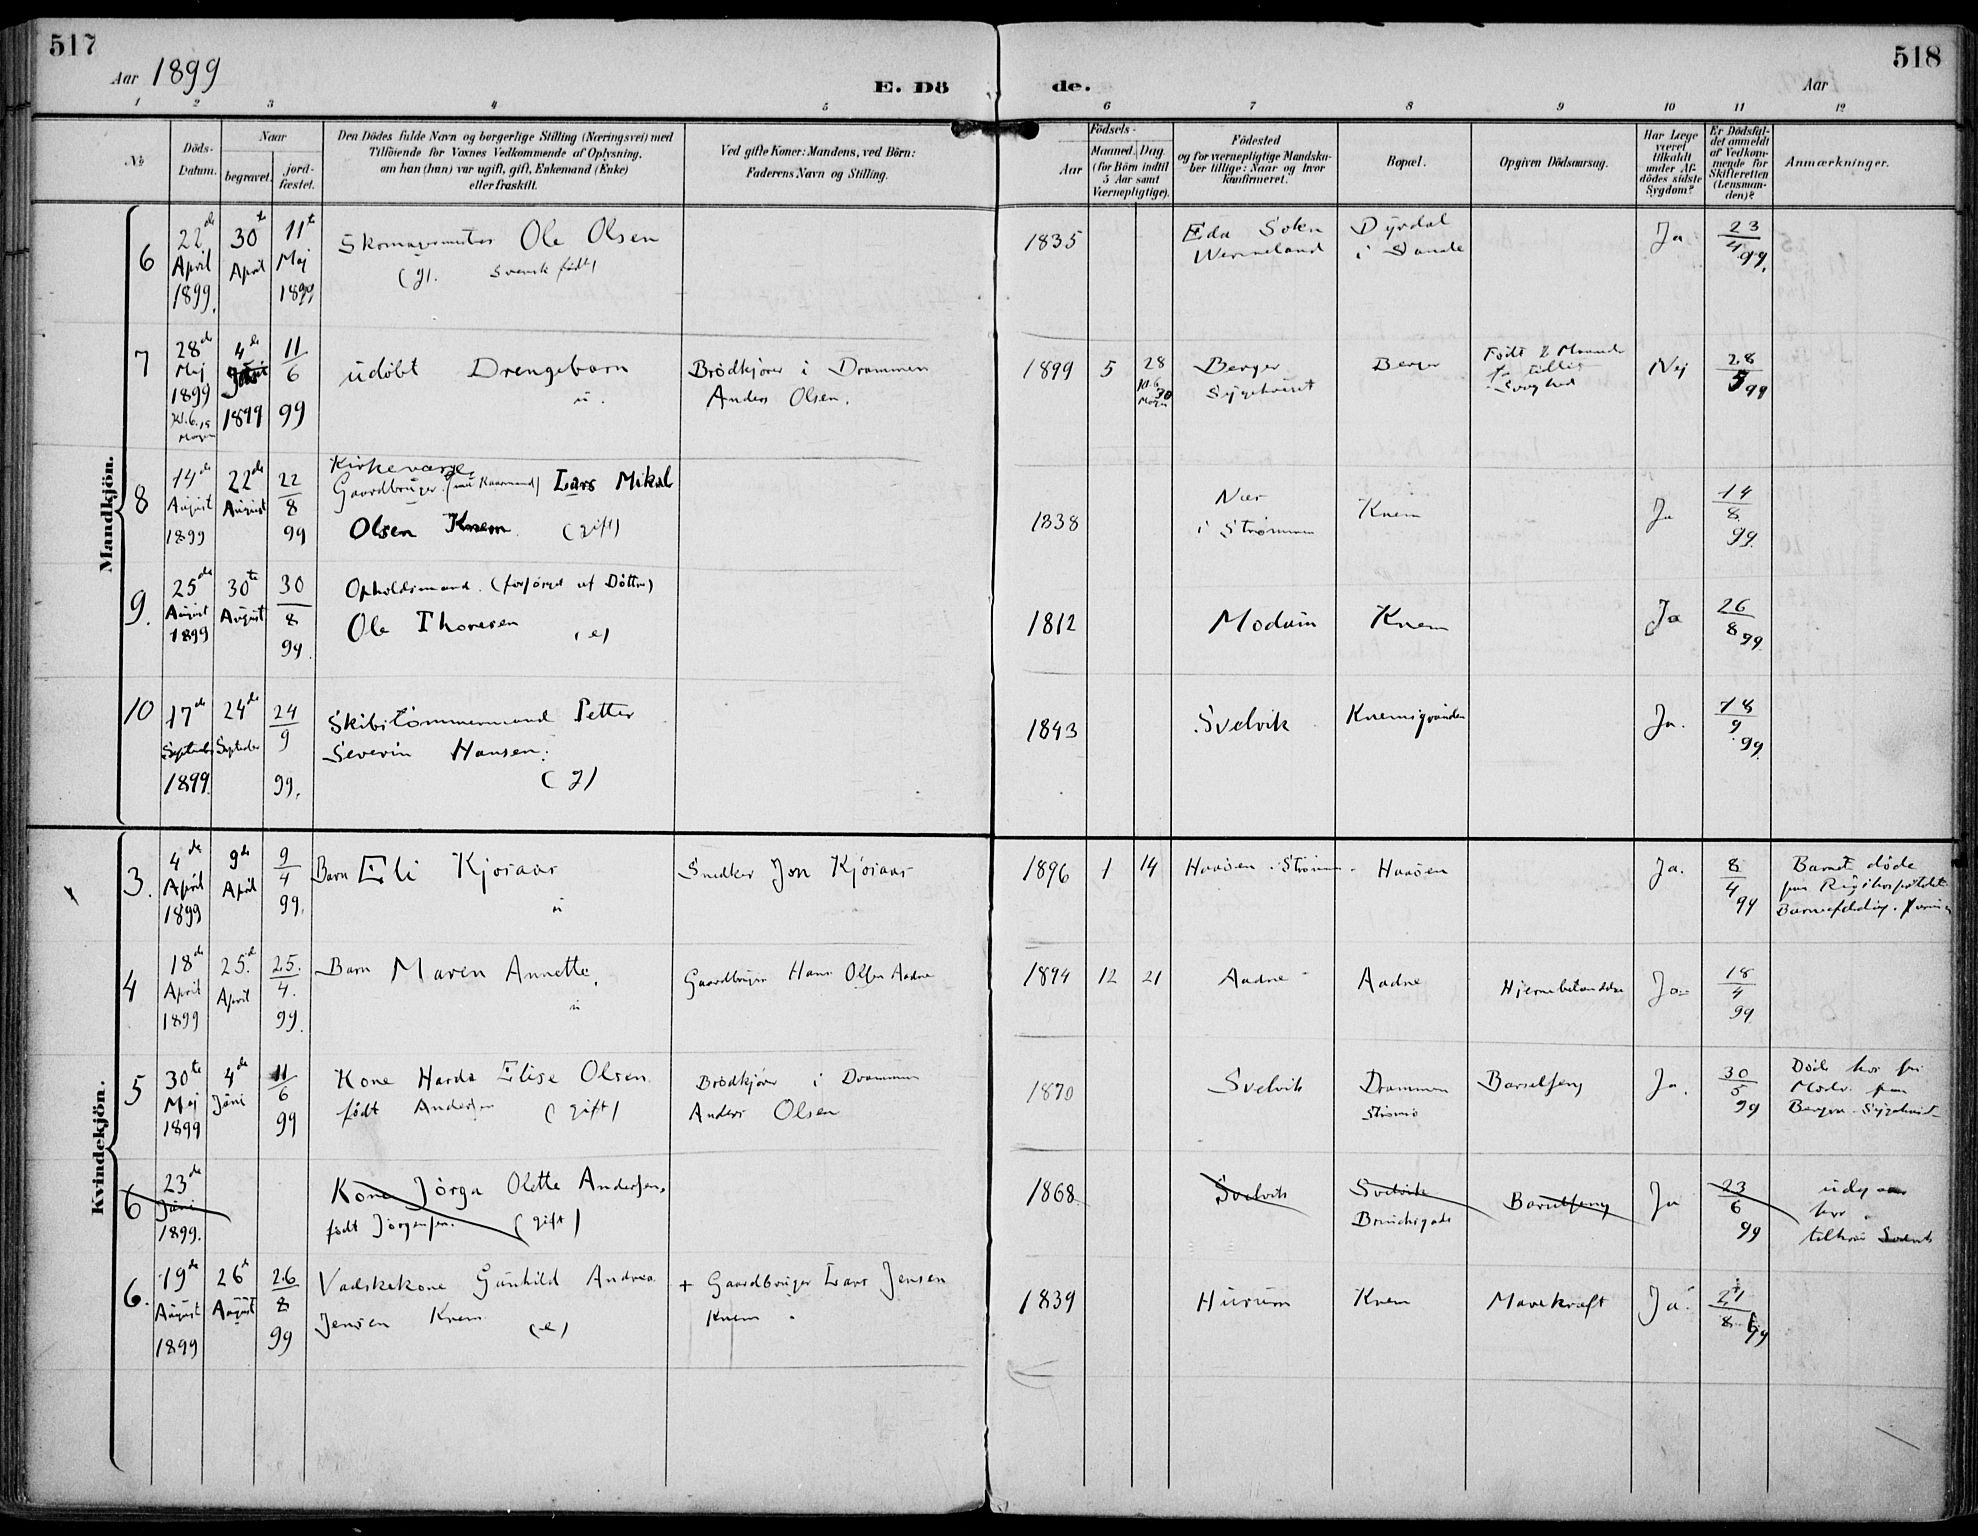 517
518
Aar 1899
E. Dö
de.
Aar
1 2 3 4 5 6 7 8 9 10 11 12
No
Döds-Datum.
Naar
begravet.
jordfæstet.
Den Dödes fulde Navn og borgerlige Stilling (Næringsvei) med
Tilföiende for Voxnes Vedkommende af Oplysning,
om han (hun) var ugift, gift, Enkemand (Enke)
eller fraskilt.
Ved gifte Koner: Mandens, ved Börn:
Faderens Navn og Stilling.
Födsels-
Aar
Maaned. Dag
(for Börn indtil
5 Aar samt
Værnepligtige).
Födested
og for værnepligtige Mandskaber tillige: Naar og hvor konfirmeret.
Bopæl.
Opgiven Dödsaarsag.
Har Læge
været
tilkaldt
under Afdödes sidste
Sygdom?
Er Dödsfaldet anmeldt
af Vedkommende for
Skifteretten
(Lensmanden)?
Anmærkninger.
Mandkjön.
6 22de April 1899. 30te April 11te Maj 1899 Skomagermester Ole Olsen (g). Svensk født) 1835 Eda Sokn Wermeland Dyrdal i Sande Ja 23/4 99.
7 28de Maj 1899 Kl. 6.15 Morgen 4de Juni 1899 11/6 99 udöbt Drengebarn u. Brödkjører i Drammen Anders Olsen. 1899 5 28 Kl. 6 30 Morgen Berger Sygehuset Berger Født 2 Maaneder for tidlig Svaghed Nej 28/5 99
8 14de August 1899 22de August 22/8 99 Kirkeværge Gaardbruger Lars Mikal Olsen Knem (gift) 1838 Nær i Strömmen Knem Ja 14/8 99.
9. 25de August 1899 30te August 30/8 99. Opholdsmand. (forsörget af Döttre) Ole Thoresen (e) 1812 Modum Knem Ja 26/8 99.
10 17de September 1899. 24de September 24/9 99. Skibstömmermand Petter Severin Hansen. (g) 1843 Svelvik Knemsgrunden Ja. 18/9 99.
Kvindekjön.
3. 4de April 1899 9de April 9/4 99. Barn Eli Kjosaas u Snedker Jon Kjösaas 1896 1 14 Haasen Strömm. Haasen Ja. 8/4 99 Barnet døde paa Rigshospitalet Barneafdeling.
4 18de April 1899 25de April 25/4. 99. Barn Maren Annette. u Gaardbruger Hans Olsen Aadne 1894 12 21 Aadne Aadne Hjernebetændelse Ja 18/4 99
5 30te Maj 1899 4de Juni 11/6 99 Kone Harda Elise Olsen født Andersen (gift) Brödkjører i Drammen Anders Olsen 1870 Svelvik Drammen Strömsö Barselfeng Ja. 30/5 99 Döde hos sin Moder paa Berger Sygehus
6 23de Juni 1899. Kone Jörga Olette Andersen, født Jörgensen. (gift) 1868 Svelvik Svelvik Barselfeng Ja 23/6 99 udgaar her tilhör Svelvik
6. 19de August 1899 26de August 26/8 99 Vadskekone Gunhild Andrea Jensen Knem (e) + Gaardbruger Lars Jensen Knem 1839 Hurum Knem Mavekræft Ja. 21/8 99